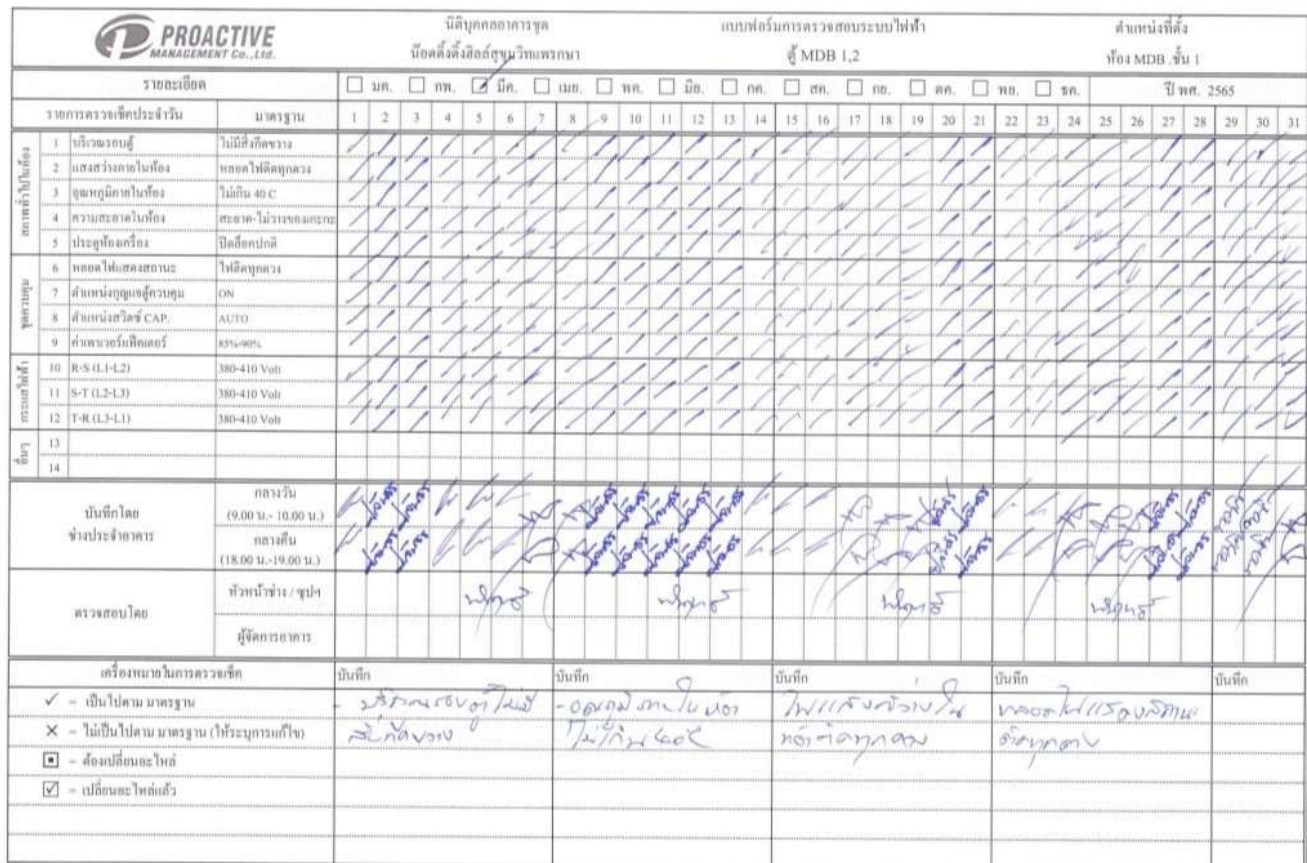 PROACTIVE
MANAGEMENT Co.,Ltd.
นิติบุคคลอาคารชุด
น๊อตติ้งฮิลล์สุขุมวิทแพรกษา
แบบฟอร์มการตรวจสอบระบบไฟฟ้า
ตู้ MDB 1,2
ตำแหน่งที่ตั้ง
ห้อง MDB .ชั้น 1
รายละเอียด มค. กพ. มีค. เมย. พค. มิย. กค. สค. กย. ตค. พย. ธค. ปี พศ. 2565
รายการตรวจเช็คประจำวัน มาตรฐาน 1 2 3 4 5 6 7 8 9 10 11 12 13 14 15 16 17 18 19 20 21 22 23 24 25 26 27 28 29 30 31
สภาพทั่วไปในห้อง
1 บริเวณรอบตู้ ไม่มีสิ่งกีดขวาง
2 แสงสว่างภายในห้อง หลอดไฟติดทุกดวง
3 อุณหภูมิภายในห้อง ไม่เกิน 40 C
4 ความสะอาดในห้อง สะอาด-ไม่วางของเกะกะ
5 ประตูห้องเครื่อง ปิดล็อคปกติ
ชุดควบคุม
6 หลอดไฟแสดงสถานะ ไฟติดทุกดวง
7 ตำแหน่งกุญแจตู้ควบคุม ON
8 ตำแหน่งสวิตซ์ CAP. AUTO
9 ค่าเพาเวอร์แฟ็คเตอร์ 85%-90%
กระแสไฟฟ้า
10 R-S (L1-L2) 380-410 Volt
11 S-T (L2-L3) 380-410 Volt
12 T-R (L3-L1) 380-410 Volt
อื่นๆ
13
14
บันทึกโดย
ช่างประจำอาคาร
กลางวัน
(9.00 น.- 10.00 น.)
กลางคืน
(18.00 น.-19.00 น.)
ตรวจสอบโดย
หัวหน้าช่าง / ซุปฯ
ผู้จัดการอาคาร
เครื่องหมายในการตรวจเช็ค บันทึก บันทึก บันทึก บันทึก บันทึก
✓ = เป็นไปตาม มาตรฐาน
✕ = ไม่เป็นไปตาม มาตรฐาน (ให้ระบุการแก้ไข)
= ต้องเปลี่ยนอะไหล่
= เปลี่ยนอะไหล่แล้ว
- บริเวณรอบตู้ ไม่มี
สิ่งกีดขวาง
- อุณภูมิ ภายใน ห้อง
ไม่เกิน 40 ํc
ไฟแสงสว่างใน
ห้องติดทุกดวง
หลอดไฟแสดงสถานะ
ติดทุกดวง